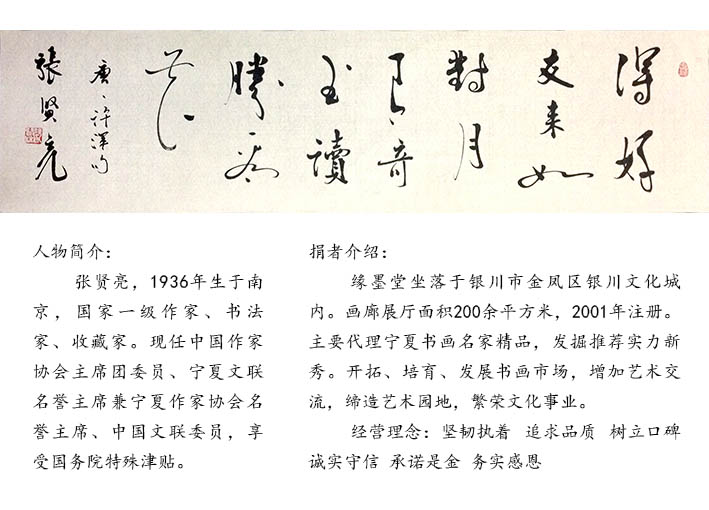 得好
友来如
對月
有奇
书讀
勝看
花
唐、许浑句
張賢亮
人物简介：
张贤亮，1936年生于南
京，国家一级作家、书法
家、收藏家。现任中国作家
协会主席团委员、宁夏文联
名誉主席兼宁夏作家协会名
誉主席、中国文联委员，享
受国务院特殊津贴。
捐者介绍：
缘墨堂坐落于银川市金凤区银川文化城
内。画廊展厅面积200余平方米，2001年注册。
主要代理宁夏书画名家精品，发掘推荐实力新
秀。开拓、培育、发展书画市场，增加艺术交
流，缔造艺术园地，繁荣文化事业。
经营理念：坚韧执着 追求品质 树立口碑
诚实守信 承诺是金 务实感恩